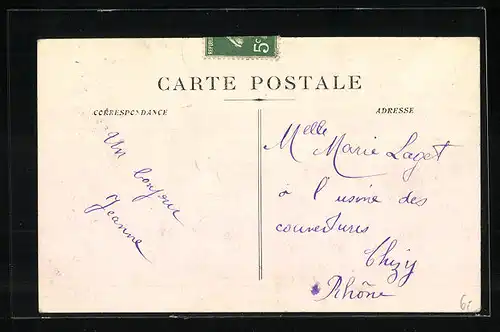 REPUBLIQUE
5c
CARTE POSTALE
CORRESPONDANCE
Un bonjour
Jeanne
ADRESSE
Melle Marie Laget
à l'usine des
couvertures
Thizy
Rhône